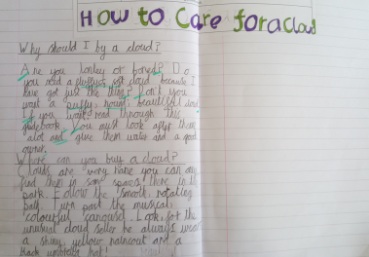 How to Care for a Cloud
Why should I by a cloud?
Are you lonley or bored? Do
you need a pet cloud because I
have got just the thing? Don't you
want a beautiful
if you want read through this
guidebook. You must look after them
alot and give them water and a good
owner.
Where can you buy a cloud?
Clouds are very rare you can only
find them in some there in the
park. Follow the smooth, rotating
path turn past the musical,
colourful carousel. Look for the
unusual cloud seller he always wears
a shiny, yellow raincoat and a
black umbrella hat!